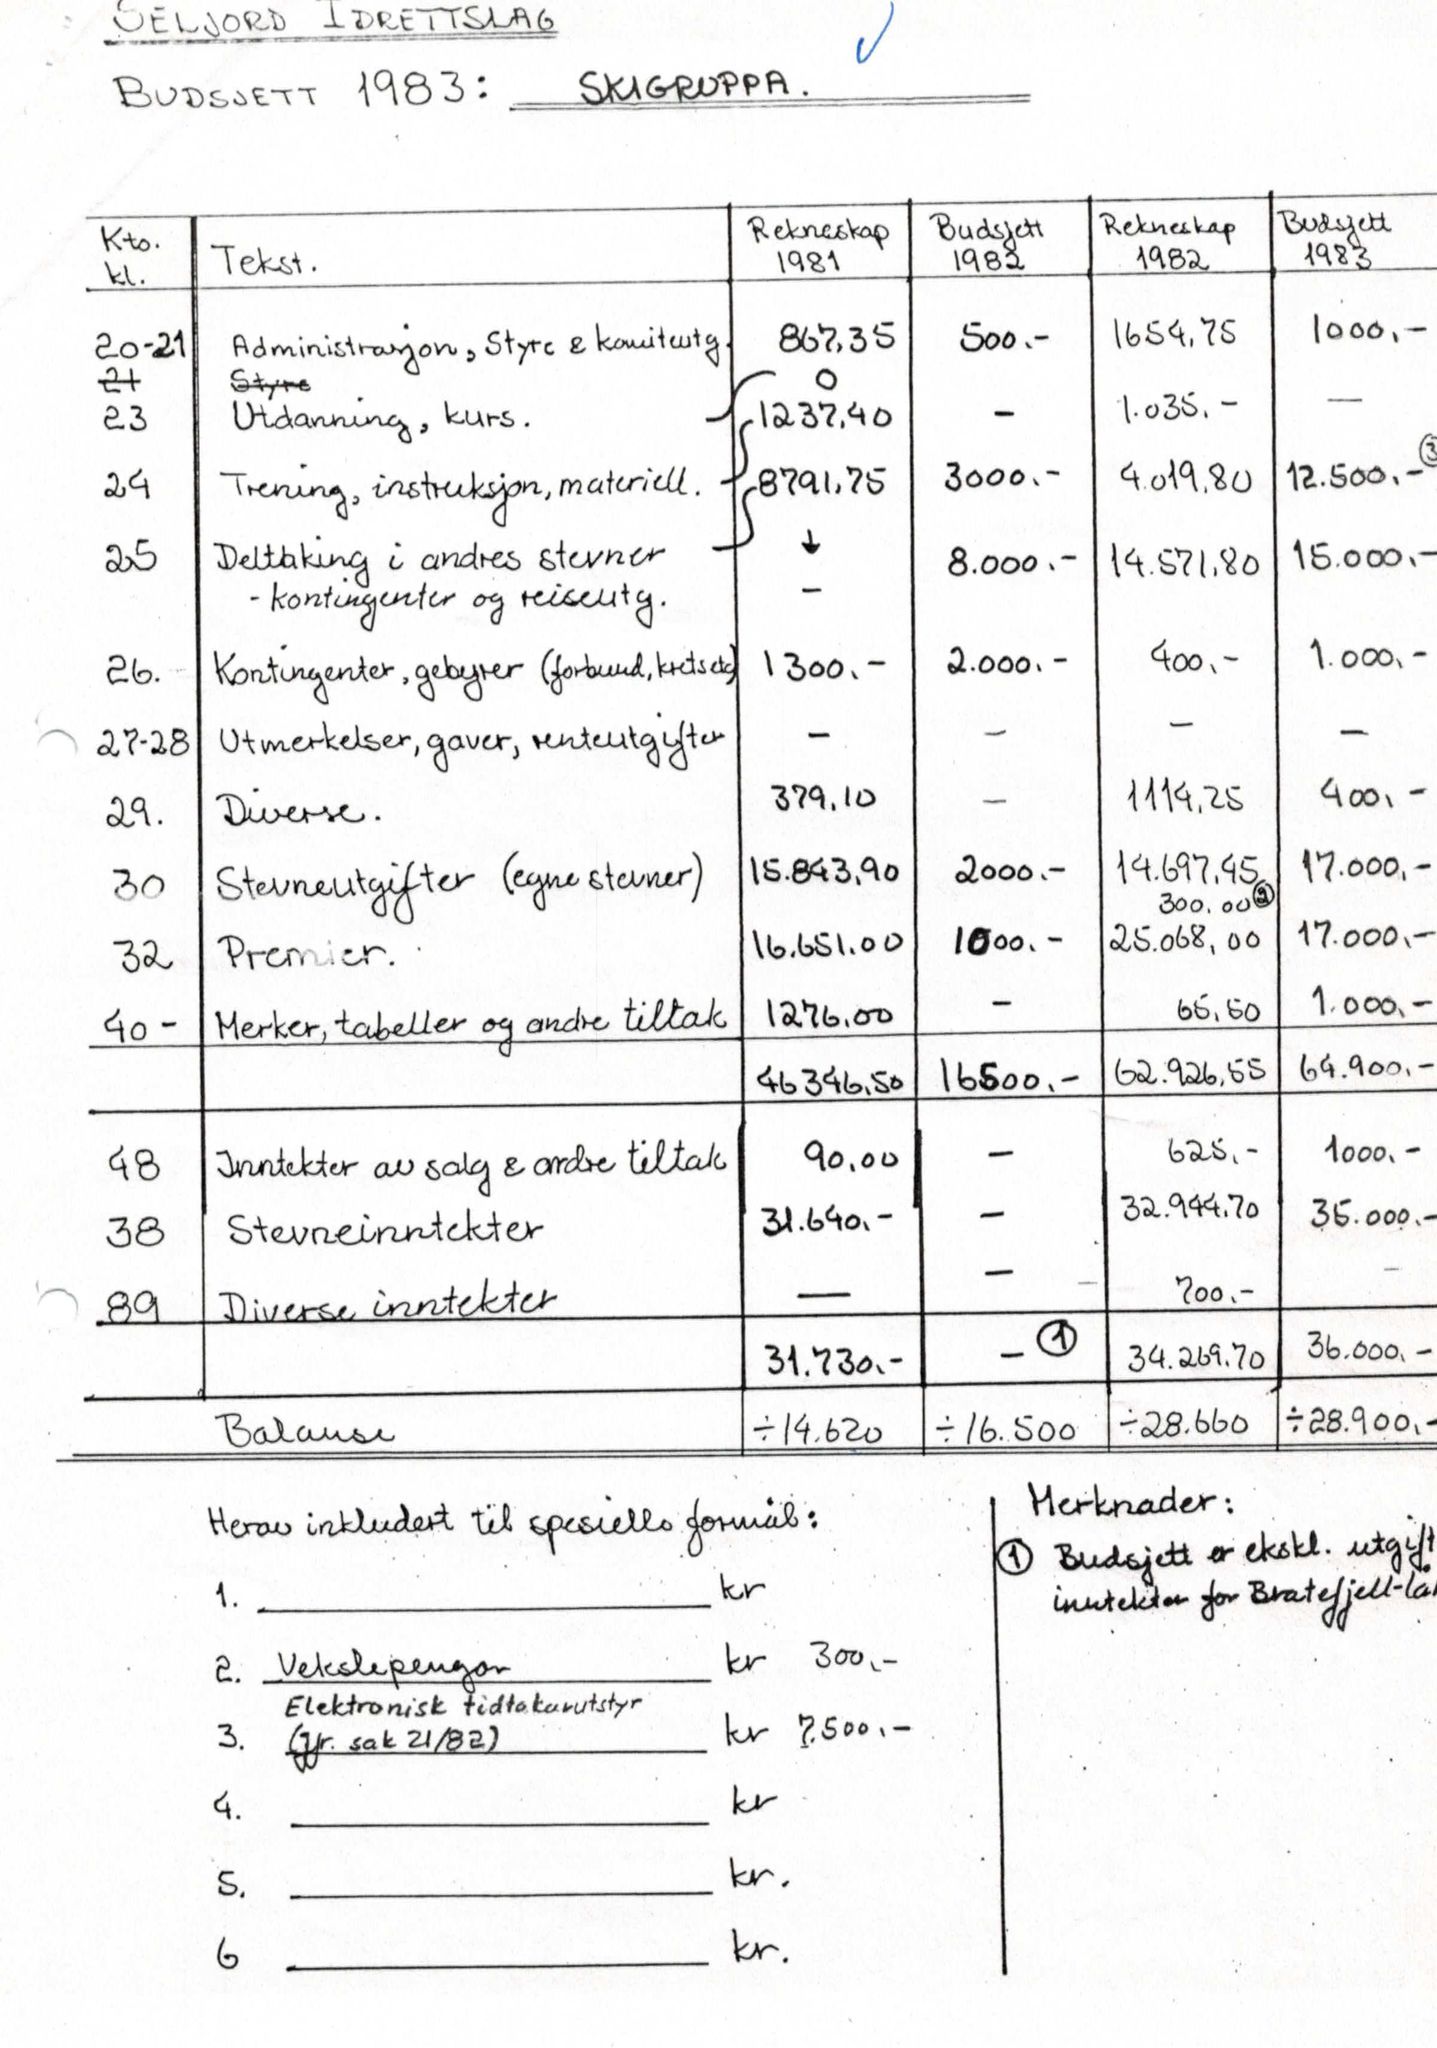 SELJORD IDRETTSLAG
BUDSJETT 1983: SKIGRUPPA.
Kto. kl. Tekst. Rekneskap 1981 Budsjett 1982 Rekneskap 1982 Budsjett 1983
20-21 Administrasjon, Styre & komiteutg. 867,35 500.- 1654,75 1000,-
21 Styre 0
23 Utdanning, kurs. 1237,40 - 1.035.- -
24 Trening, instruksjon, materiell. 8791,75 3000.- 4.019,80 12.500.- ③
25 Deltaking i andres stevner ↓ 8.000.- 14.571,80 15.000.-
- kontingenter og reiseutg. -
26. Kontingenter, gebyrer (forbund, krets etc) 1300.- 2.000.- 400.- 1.000.-
27-28 Utmerkelser, gaver, renteutgifter - - - -
29. Diverse. 379,10 - 1114,25 400,-
30 Stevneutgifter (egne stevner) 15.843,90 2000.- 14.697,45 17.000,-
300,00 ②
32 Premier. 16.651.00 1000.- 25.068,00 17.000,-
40- Merker, tabeller og andre tiltak 1276,00 - 65,50 1.000,-
46346,50 16500,- 62.926,55 64.900,-
48 Inntekter av salg & andre tiltak 90,00 - 625,- 1000.-
38 Stevneinntekter 31.640.- - 32.944,70 35.000.-
89 Diverse inntekter - - 700.- -
31.730.- - ① 34.269,70 36.000,-
Balanse ÷14.620 ÷16.500 ÷28.660 ÷28.900,-
Herav inkludert til spesielle formål:
1. kr
2. Vekslepengar kr 300,-
Elektronisk tidtakarutstyr
3. (jfr. sak 21/82) kr 7.500.-
4. kr
5. kr.
6 kr.
Merknader:
① Budsjett er ekskl. utgift
inntekter for Bratefjell-